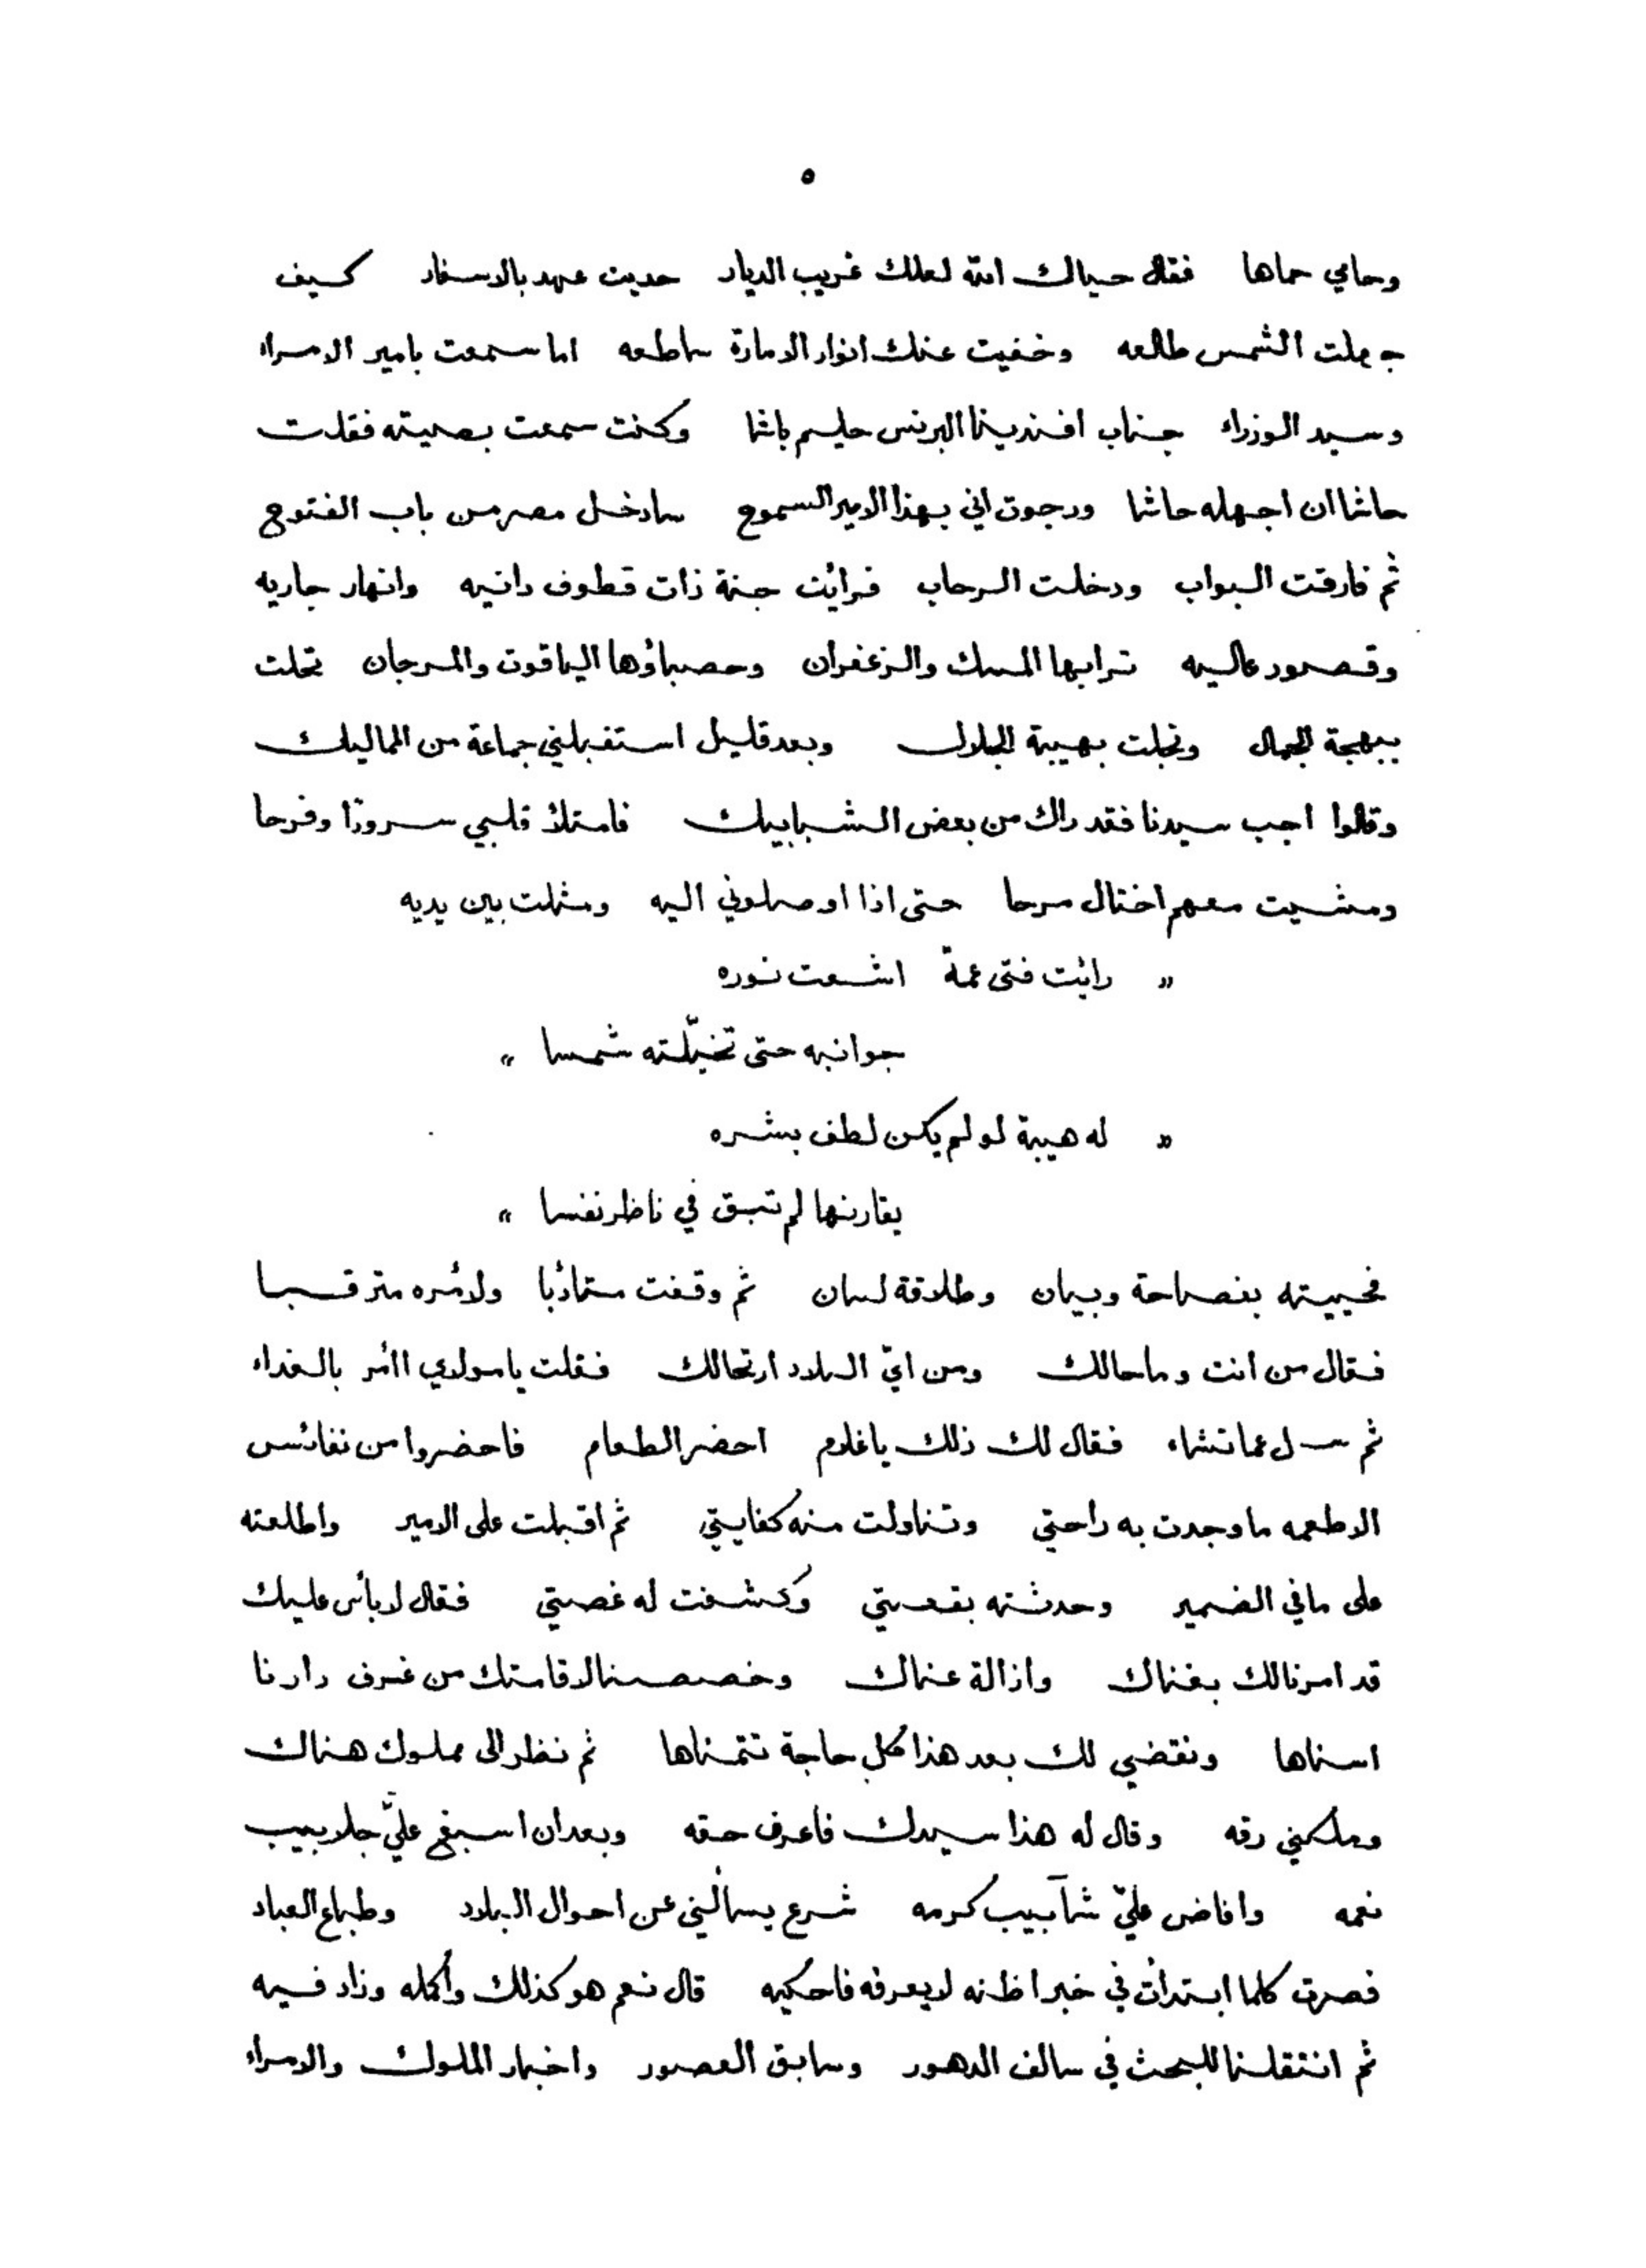 ٥
وحامي حماها فقال حياك الله لعلك غريب الديار حديث عهد بالاسفار كيف
جهلت الشمس طالعه وخفيت عنك انوار الامارة ساطعه اما سمعت بامير الامراء
وسيد الوزراء جناب افندينا البرنس حليم باشا وكنت سمعت بصيته فقلت
حاشا ان اجهله حاشا ورجوت اني بهذا الامير السموح سادخل مصر من باب الفتوح
ثم فارقت البواب ودخلت الرحاب فرائت جنة ذات قطوف دانيه وانهار جاريه
وقصور عاليه ترابها المسك والزعفران وحصباؤها الياقوت والمرجان تحلت
ببهجة الجمال وتجلت بهيبة الجلال وبعد قليل استقبلني جماعة من المماليك
وقالوا اجب سيدنا فقد راك من بعض الشبابيك فامتلأ قلبي سرورًا وفرحا
ومشيت معهم اختال مرحا حتى اذا اوصلوني اليه ومثلت بين يديه
« رائت فتى عمة اشعت نوره
جوانبه حتى تخيّلته شمسا »
« له هيبة لو لم يكن لطف بشره
يقارنها لم تبق في ناظر نفسا »
فحييته بفصاحة وبيان وطلاقة لسان ثم وقفت متأدبا ولامره مترقبا
فقال من انت وما حالك ومن ايّ البلاد ارتحالك فقلت يا مولاي اأمر بالغداء
ثم سل عما تشاء فقال لك ذلك يا غلام احضر الطعام فاحضروا من نفائس
الاطعمه ما وجدت به راحتي وتناولت منه كفايتي ثم اقبلت على الامير واطلعته
على ما في الضمير وحدثته بقصتي وكشفت له غصتي فقال لا بأس عليك
قد امرنا لك بغناك وازالة عناك وخصصنا لاقامتك من غرف دارنا
اسناها ونقضي لك بعد هذا كل حاجة تتمناها ثم نظر الى مملوك هناك
وملكني رقه وقال له هذا سيدك فاعرف حقه وبعد ان اسبغ عليّ جلابيب
نعمه وافاض عليّ شآبيب كرمه شرع يسألني عن احوال البلاد وطباع العباد
فصرت كلما ابتدأت في خبر اظنه لا يعرفه فاحكيه قال نعم هو كذلك وأكمله وزاد فيه
ثم انتقلنا للبحث في سالف الدهور وسابق العصور واخبار الملوك والامراء